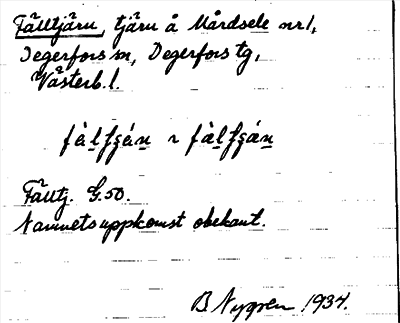 Fälltjärn, tjärn å Mårdsele nr 1,
Degerfors sn, Degerfors tg,
Västerb. l.
Fälltj. G.50.
Namnets uppkomst obekant.
B. Nygren 1934.